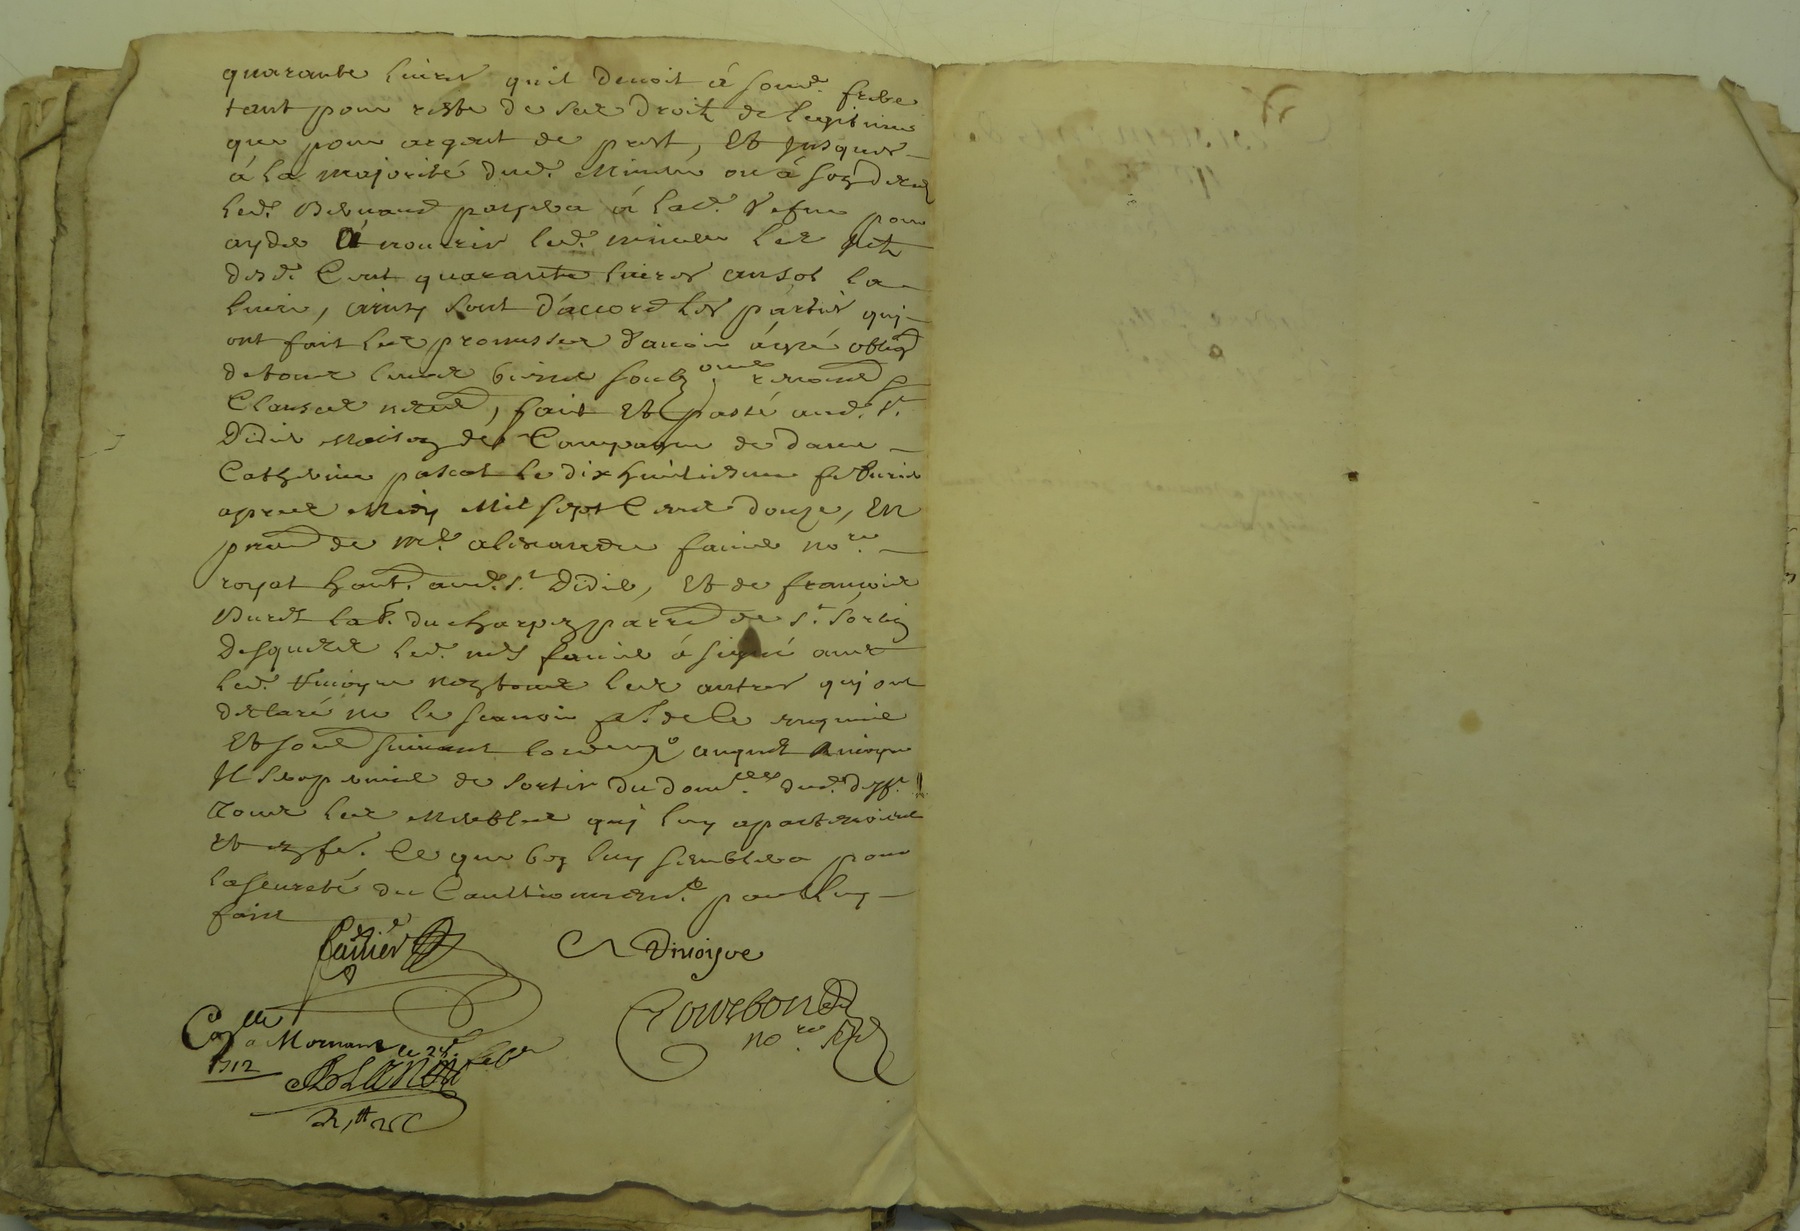 quarante livres quil devoit á soud. frere
tant pour reste de ses droitz de legitime
que pour argent de prest, Et jusques
á la majorité dud. Mineur ou á son deces
led. Bernard payera á lad. vefve pour
ayder á nourrir led. mineur les
desd. Cent quarante livres au sol la
livre, ainsy sont d'accord les parties quj
ont fait les promisses d'avoir ágré oblig.
de tous leurs biens soubz renond.
Clauses necess., fait Et passé aud. St.
Didier Maison de Compagne de dame
Catherine pascal le dix huitiesme febvrier
apres Midy Mil sept Cents douze, En
pred. de Me. alexandre favier nore.
royal habt. aud. St. Didier, Et de francois
Buret lab. du charpez parr. de St. Sorlin
desquels led. Me favier á signé avec
led. Vinoyre non tous les autres quj ont
declaré ne le scavoir de ce enquis
Et soub suivant
Jl sera permis de sortir du dom. dud. deff.
Tous les Meubles quj luy apartenoient
et en fe. Ce que bon luy semblera pour
la seureté du Cautionnemt. par luy
faict
favier C Vinoyre
Courbon
nore. Rl
Conlle a Mornant le 24e febr
1712